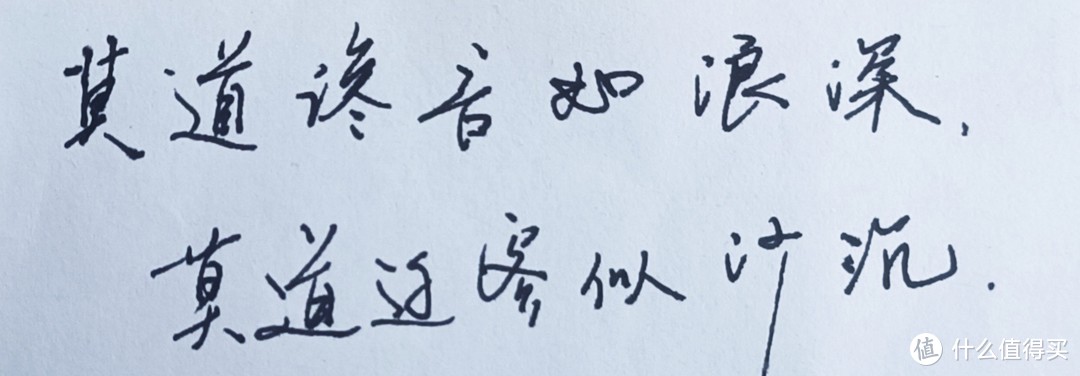 莫道谗言如浪深,
莫道迁客似沙沉.
值 什么值得买